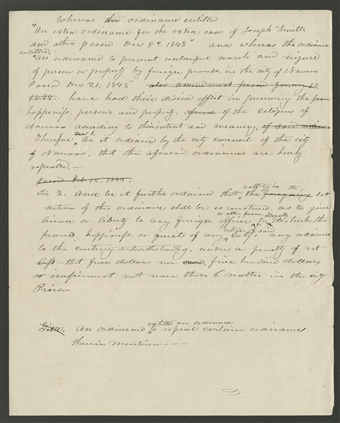 Whereas the ordinance entitled
"An extra ordinance for the extra case of Joseph Smith
and others passed Dec 8th 1843" and whereas the ordinance
entitled,
"An ordinance to prevent unlawful search and seizure
of person or property by foreign process, in the city of Nauvoo
Passed Dec 21, 1843" also amendment passed
1844. have had their desired effect in preserving the peace
happiness, persons and property, of the citizens of
Nauvoo according to their intent and meaning,
Therefore Sec 1. Be it ordained by the city council of the city
of Nauvoo, that the aforesaid ordinances are hereby
repealed—
passed Feb 12, 1844.
Sec 2. And be it further ordained that nothing in the
section of this ordinance shall be so construed, as to give
license or liberty to any foreign officer, or other person illegally to disturb the
peace, happiness, or quiet of any citizen of said city, any ordinance
to the contrary notwithstanding, under a penalty of not
less that five dollars nor five hundred dollars
or imprisonment not more than 6 months in the city
Prison
Title An ordinance entitled an ordinance to repeal certain ordinances
therein mentioned— — —